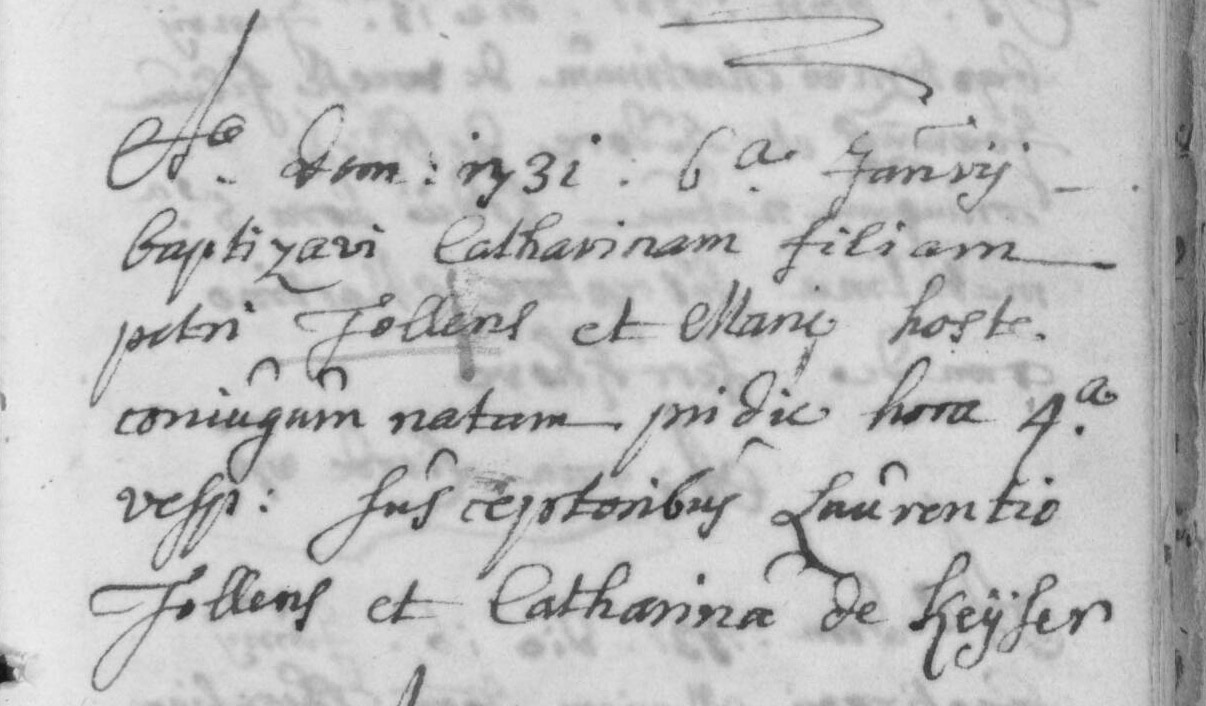 Ao. Dom: 1731. 6a. Janvij
baptizavi Catharinam filiam
petri Jollens et Marię hoste.
coniugum natam pridie hora 4a.
vesp: susceptoribus Laurentio
Jollens et Catharina de Keÿser